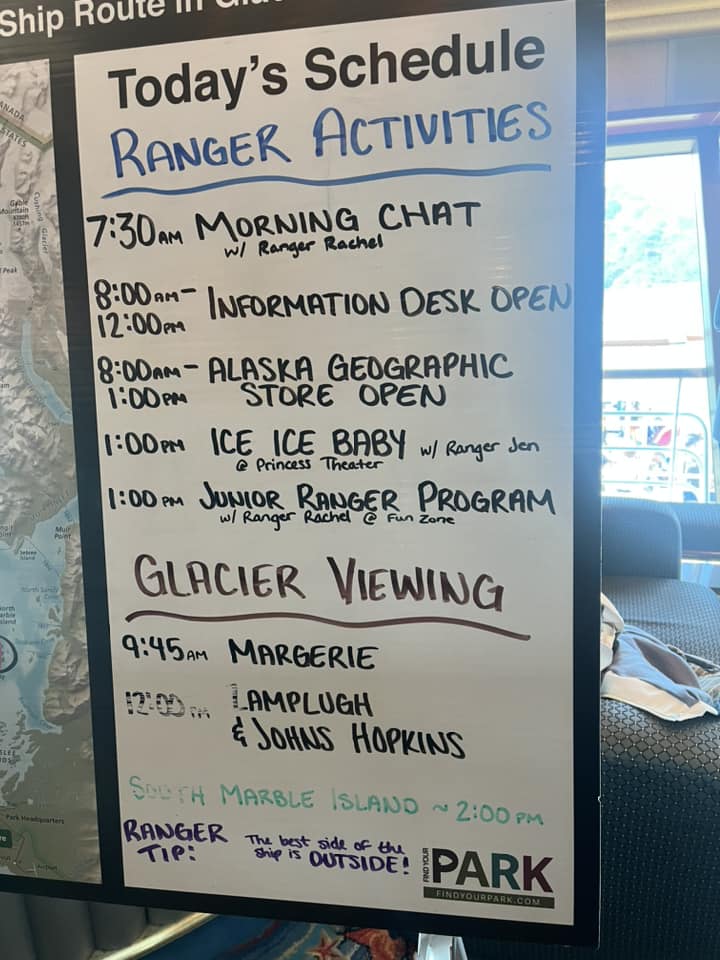 Ship Route in
Today's Schedule
RANGER ACTIVITIES
7:30AM MORNING CHAT
w/ Ranger Rachel
8:00AM- INFORMATION DESK OPEN
12:00PM
8:00AM- ALASKA GEOGRAPHIC
1:00PM STORE OPEN
1:00PM ICE ICE BABY w/ Ranger Jen
@ Princess Theater
1:00 PM JUNIOR RANGER PROGRAM
w/ Ranger Rachel @ Fun Zone
GLACIER VIEWING
9:45AM MARGERIE
12:00PM LAMPLUGH
& JOHNS HOPKINS
SOUTH MARBLE ISLAND ~ 2:00 PM
RANGER
TIP:
The best side of the
ship is OUTSIDE!
FIND YOUR
PARK
FINDYOURPARK.COM
CANADA
STATES
Gable
Mountain
Cushing
Glacier
Peak
Muir
Point
Sebree
Island
North Sandy
Cove
North
Marble
Island
Park Headquarters